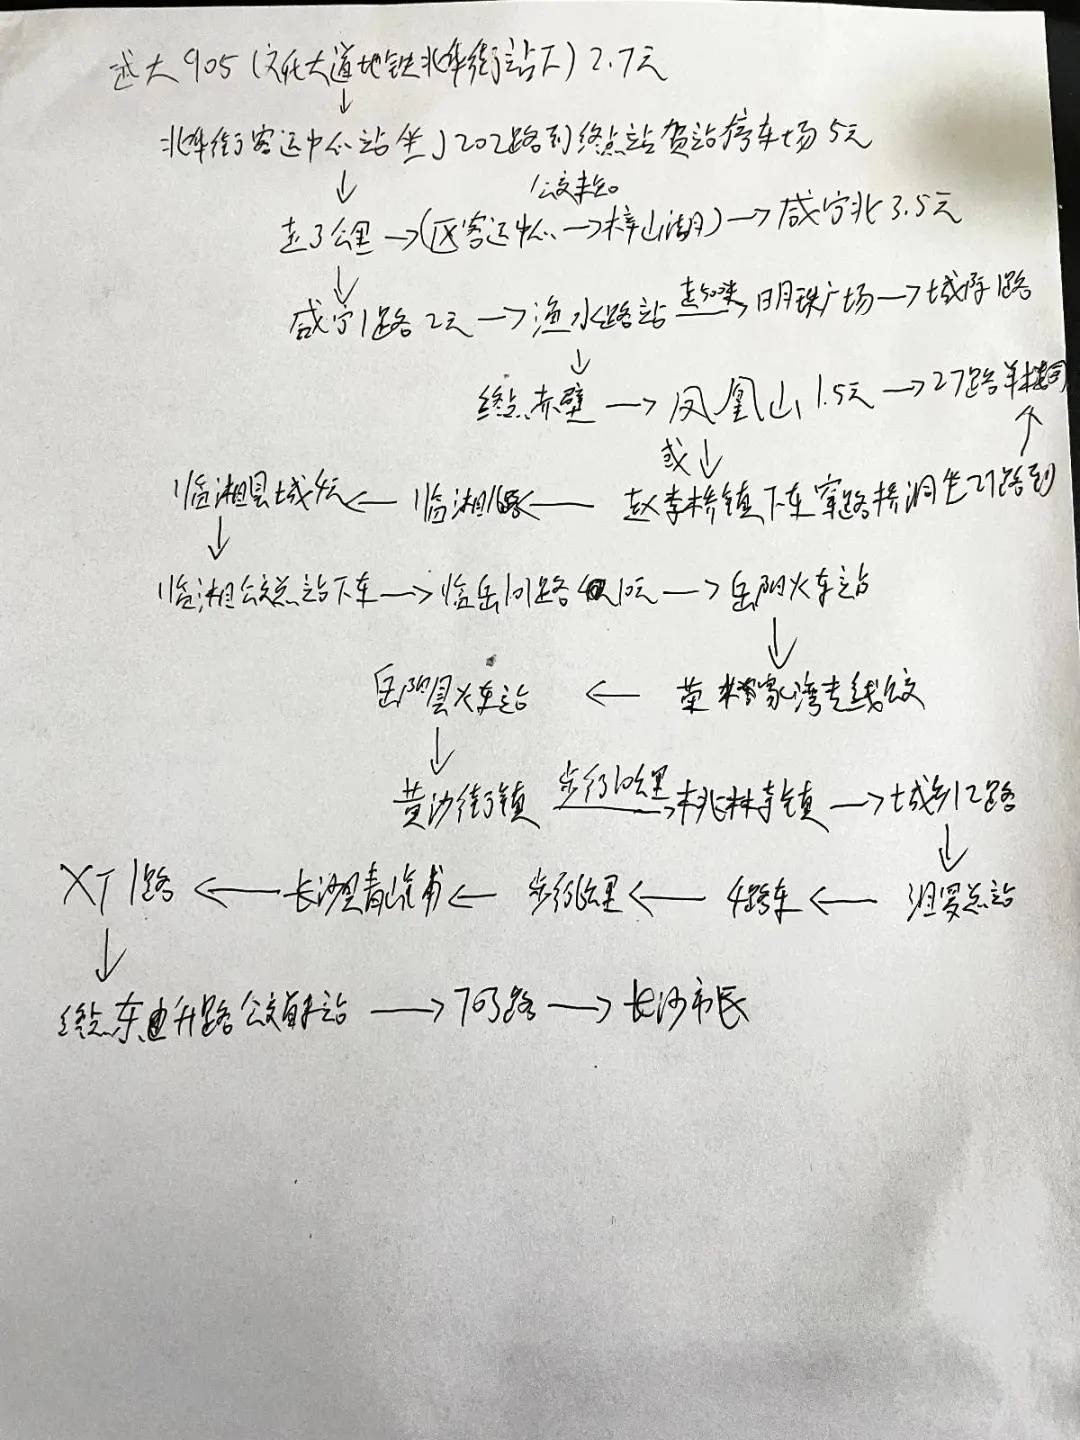 大905(文化大道地铁北华街站下)2.7元
北华街客运中心站坐J202路到终点站贺站停车场5元
公交
走了公里→(区客运中心→梓山湖)→咸宁北3.5元
咸宁1路2元→渔水路站 走50米 明珠广场→城际1路
终点赤壁→凤凰山1.5元→27路羊楼司
或
赵李桥镇下车穿路桥洞坐27路到
临湘县城4元←临湘16路
临湘公交总站下车→临岳101路10元→岳阳火车站
岳阳县火车站←荣家湾专线公交
黄沙街镇 步行10公里 桃林寺镇→城乡12路
XT1路←长沙县青山←步行公里←4路车←汨罗总站
终点东升路公交首末站→703路→长沙市民